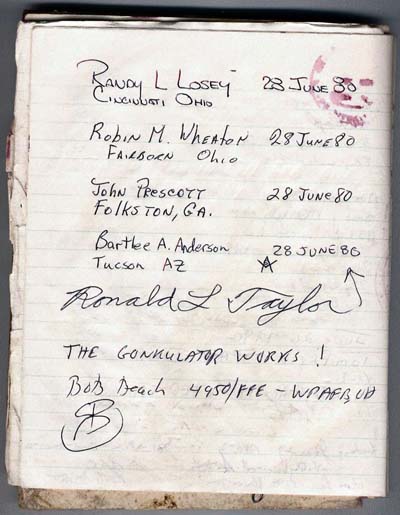 Randy L Losey 28 June 80
Cincinnati Ohio
Robin M. Wheaton 28 June 80
Fairborn Ohio
John Prescott 28 June 80
Folkston, GA.
Bartlee A. Anderson 28 June 80
Tucson AZ
Ronald L Taylor
THE GONKULATOR WORKS !
Bob Beach 4950/FFE - WPAFB, OH
B